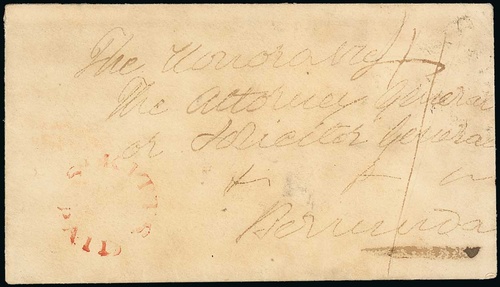 The Honorable
The Attorney General
or Solicitor General
Bermuda